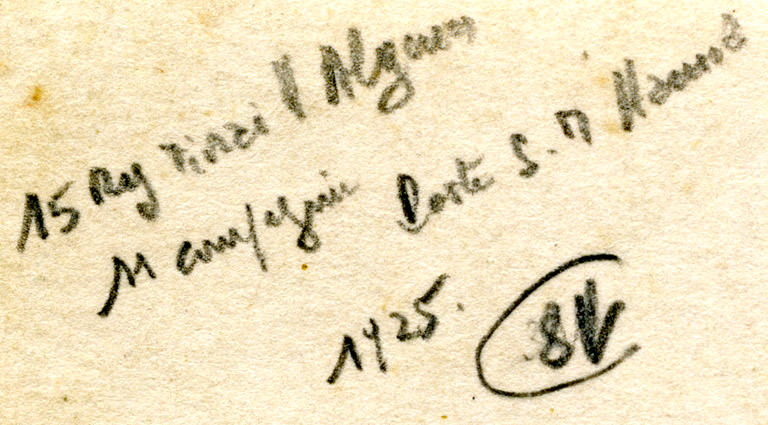 15 Reg Tirail Algerien
11 compagnie Poste S. M
1925.